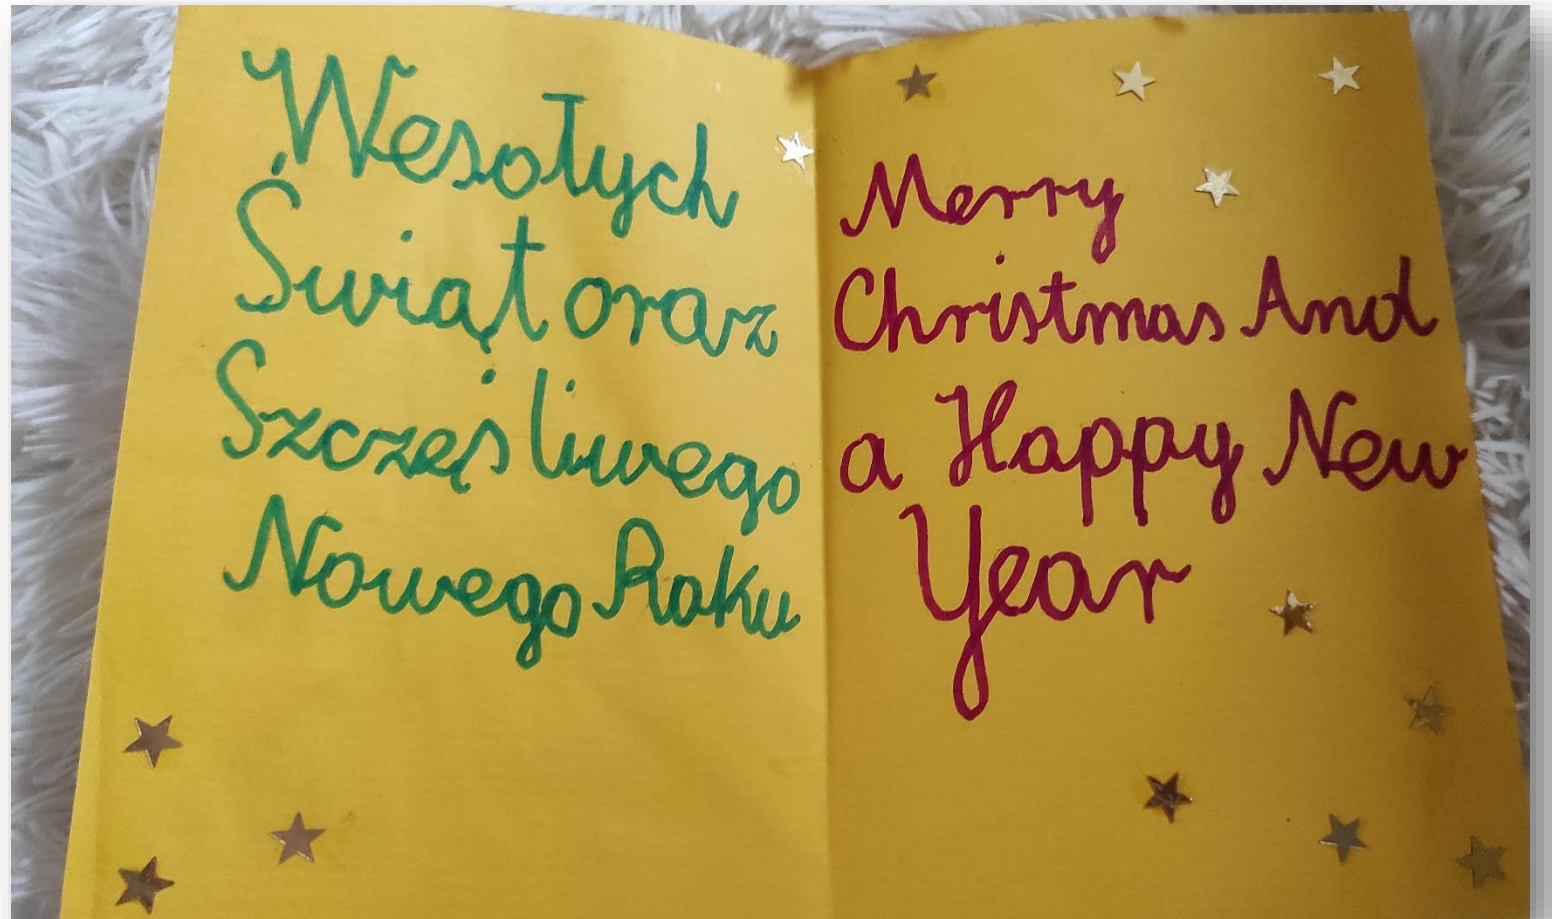 Wesołych
Świąt oraz
Szczęśliwego
Nowego Roku
Merry
Christmas And
a Happy New
Year